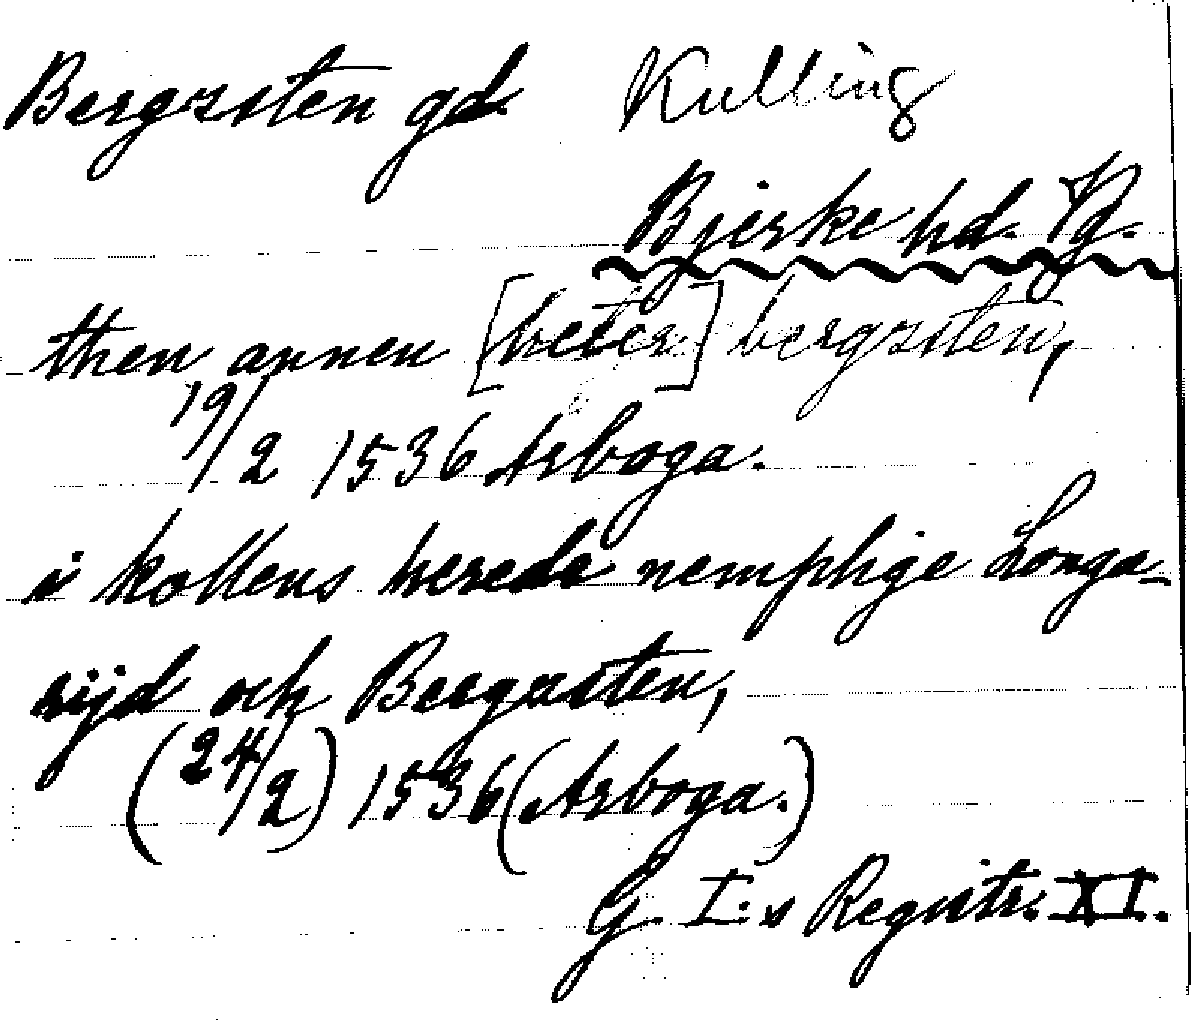 Bergsten gd. Kulling
Bjerke hd. Vg.
then annen [heter] bergsten,
19/2 1536 Arboga.
i kollens herede nemplige Longa-
rijd och Bergasten,
(24/2) 1536 (Arboga.)
G. I:s Registr. XI.